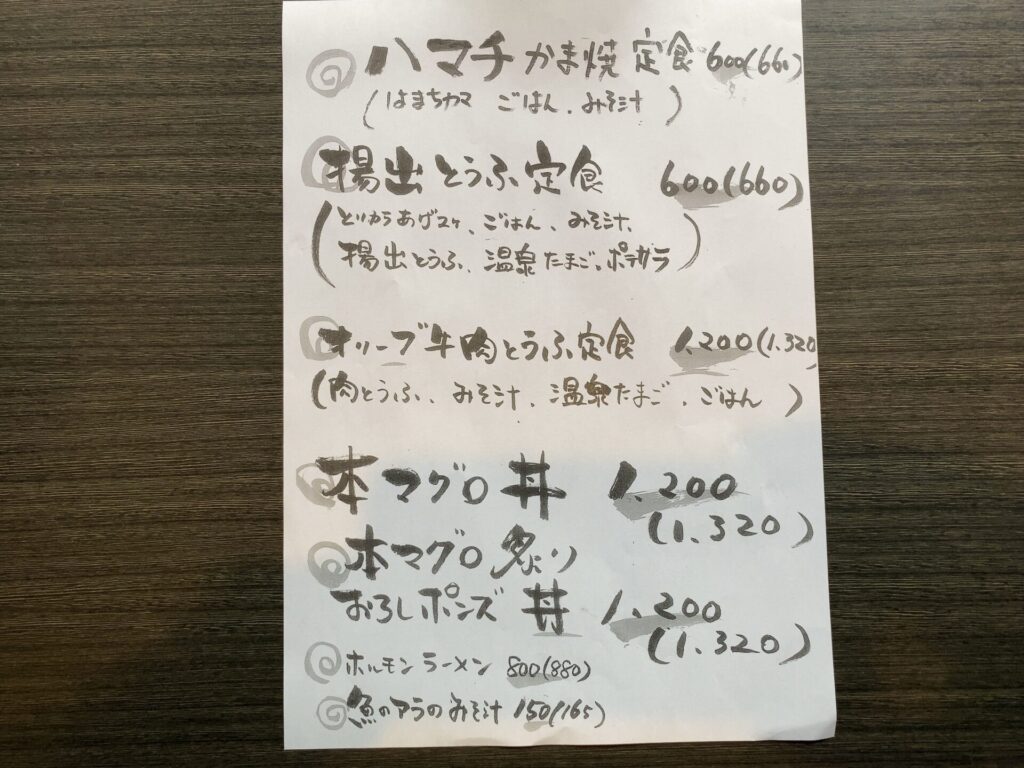 ハマチかま焼定食 600(660)
(はまちカマ ごはん、みそ汁)
揚出とうふ定食 600(660)
(とりからあげ2ヶ、ごはん、みそ汁、
揚出とうふ、温泉たまご、ポテサラ)
オリーブ牛肉とうふ定食 1,200(1,320
(肉とうふ、みそ汁、温泉たまご、ごはん)
本マグロ丼 1,200
(1,320)
本マグロ炙り
おろしポンズ丼 1,200
(1,320)
ホルモンラーメン 800(880)
魚のアラのみそ汁 150(165)